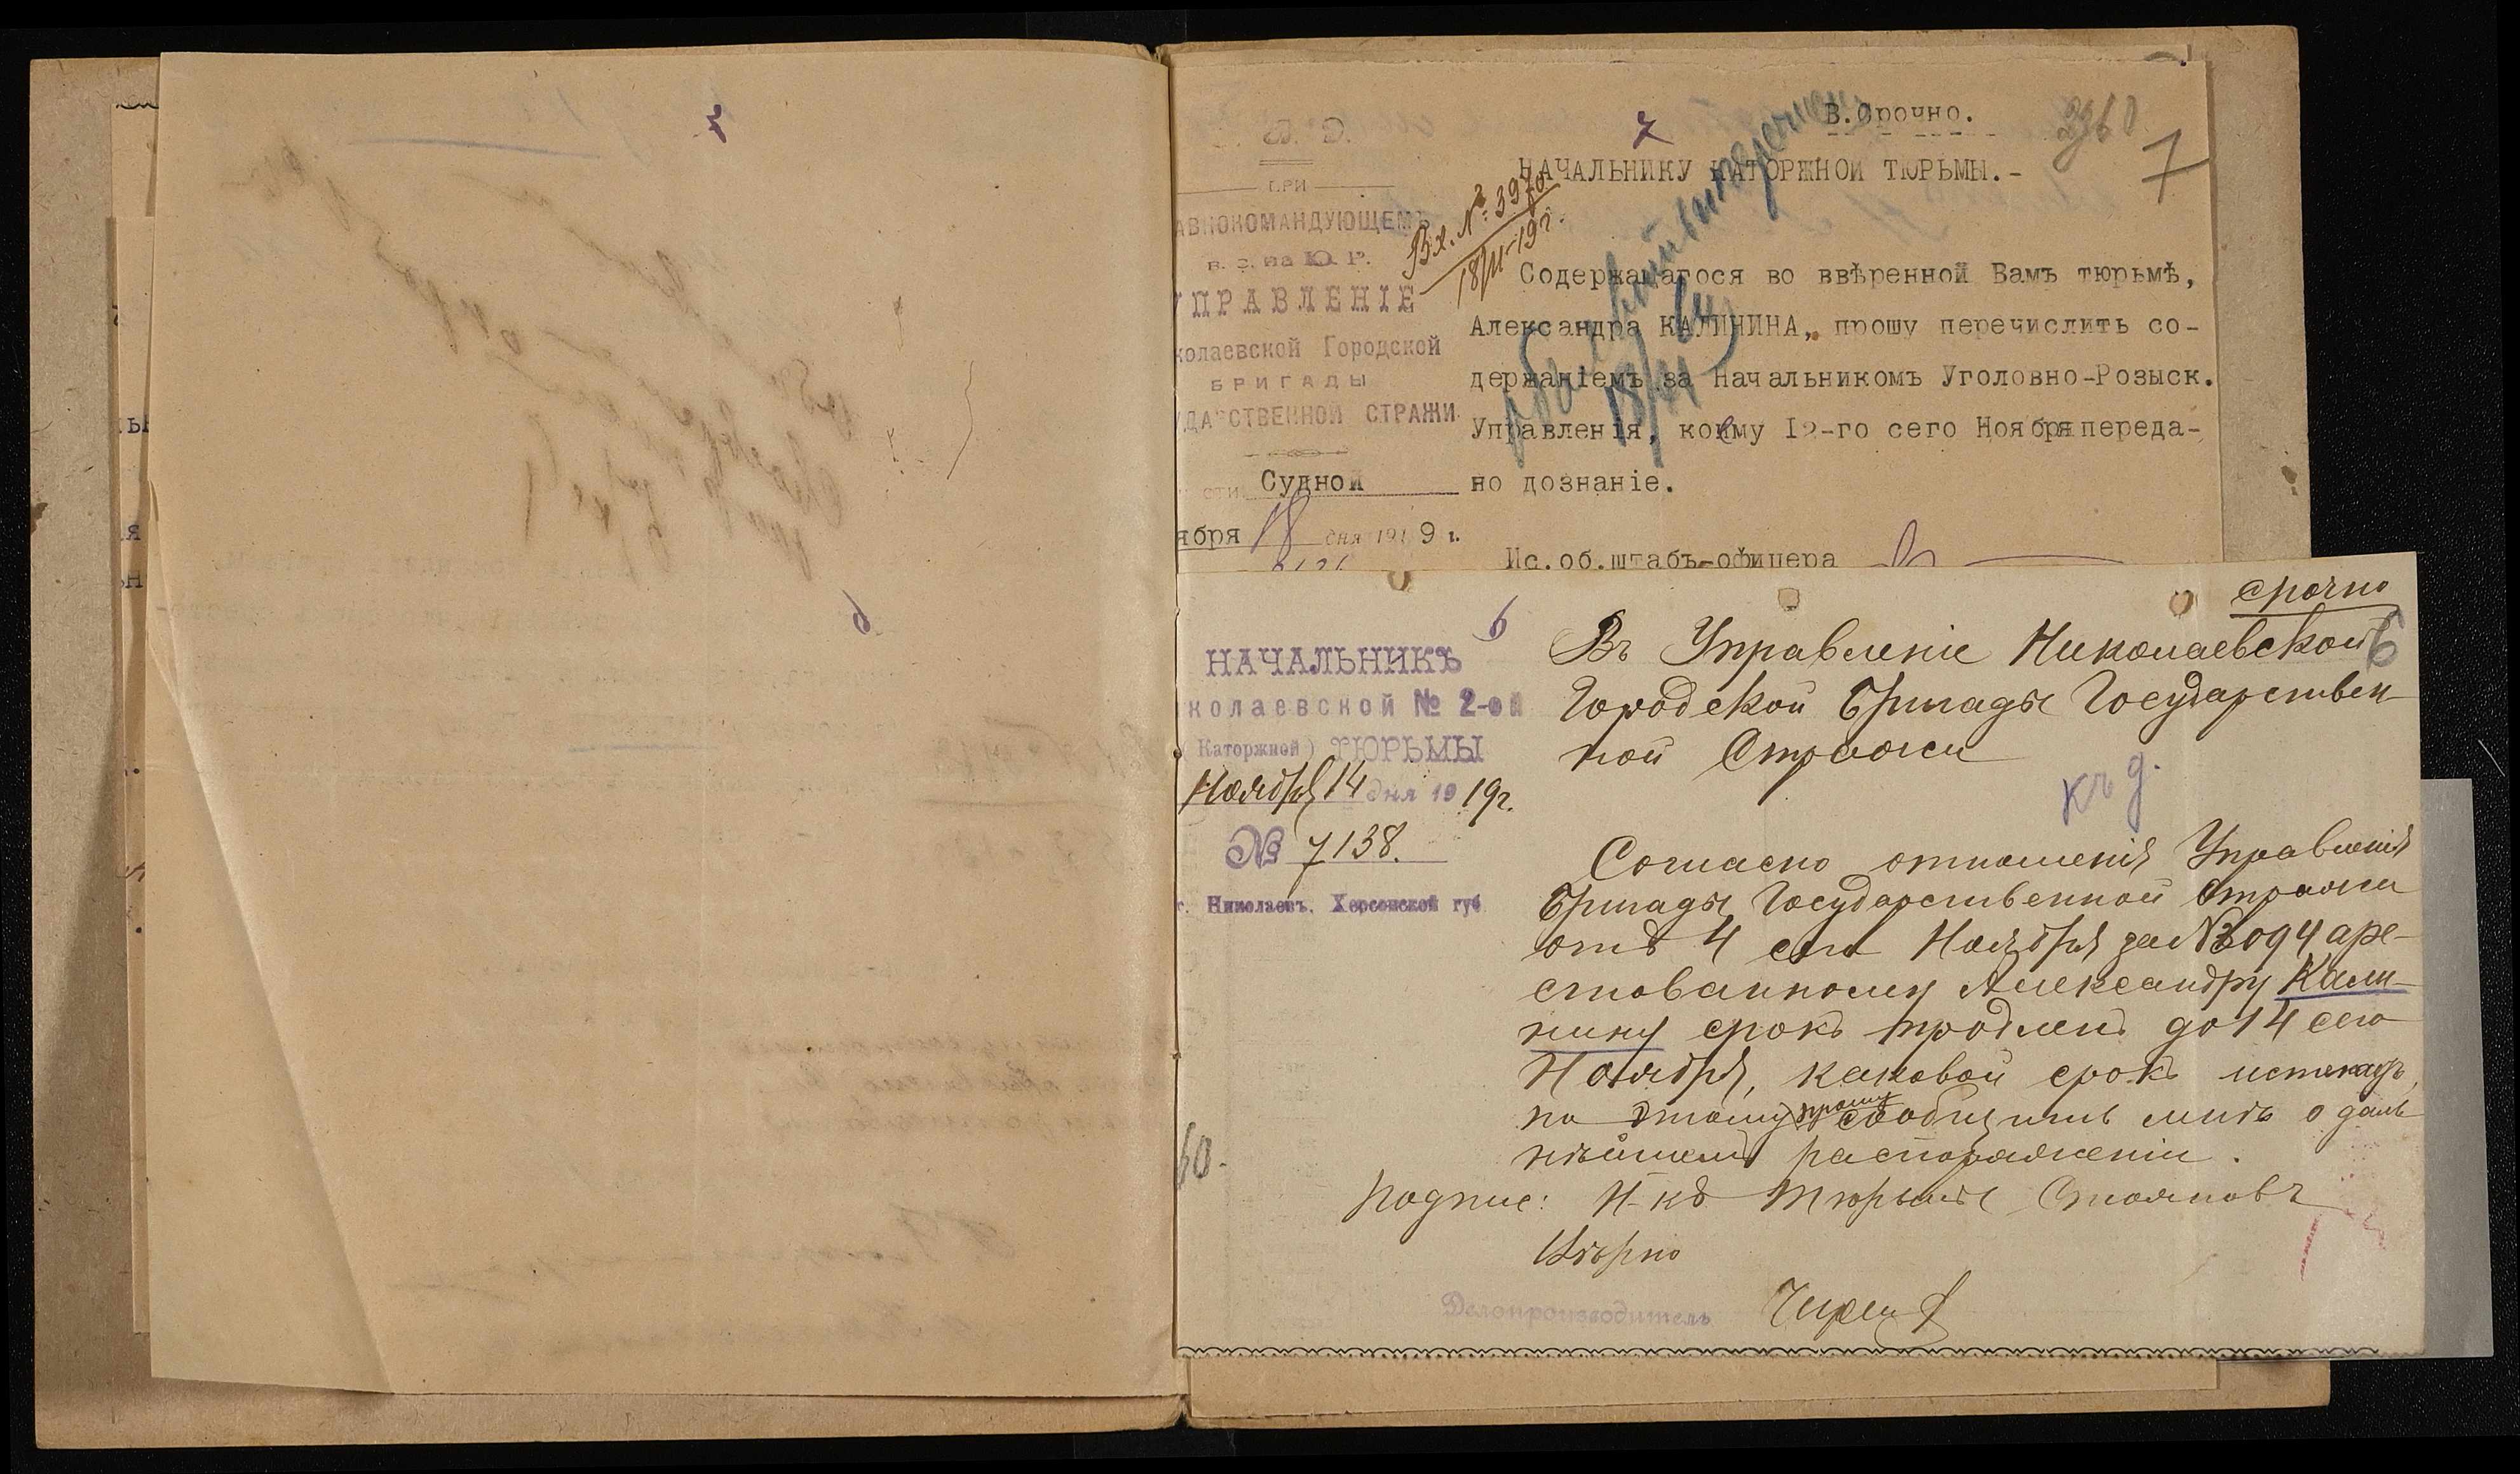 В. Срочно.
7
7
НАЧАЛЬНИКУ КАТОРЖНОЙ ТЮРЬМЫ.-
В. Д.
ПРИ
АВНОКОМАНДУЮЩЕМЪ
в. с. на Ю. Р.
УПРАВЛЕНІЕ
колаевской Городской
БРИГАДЫ
УДАРСТВЕННОЙ СТРАЖИ
сти Судной
ября 18 дня 1919 г.
Вх. № 3970
18/11-19 г.
18/11
Содержащагося во ввѣренной Вамъ тюрьмѣ,
Александра КАЛИНИНА, прошу перечислить со-
держаніемъ за Начальникомъ Уголовно-Розыск.
Управленія, коему 12-го сего Ноября переда-
но дознаніе.
Ис.об.штабъ-офицера
срочно
6
6
НАЧАЛЬНИКЪ
колаевской № 2-ой
(Каторжной) ТЮРЬМЫ
Ноября 14 дня 1919 г.
№ 7138.
г. Николаевъ, Херсонской губ
Въ Управленіе Николаевской
Городской Бригады Государствен-
ной Стражи
къ д.
Согласно отношенія Управленія
Бригады Государственной Стражи
отъ 4 сего Ноября за № 3094 аре-
стованному Александру Кали-
нину срокъ продленъ до 14 сего
Ноября, каковой срокъ истекаетъ,
по этому прошу сообщить мнѣ о даль
нѣйшемъ распоряженіи.
Подпис: Н-къ Тюрьмы Стояновъ
Вѣрно
Делопроизводитель